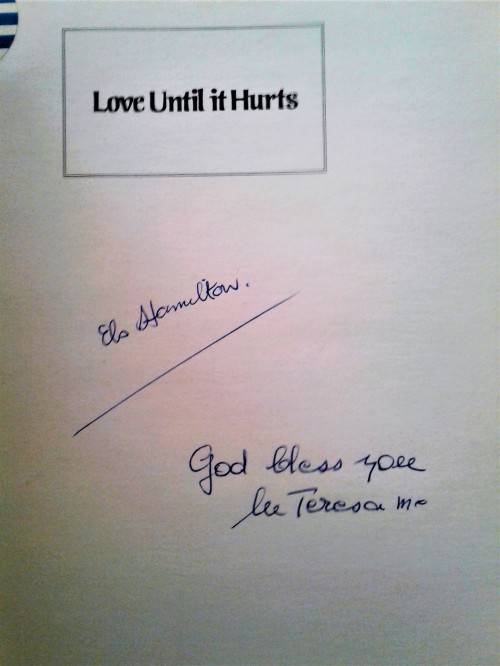 Love Until it Hurts
Els Hamilton.
God bless you
lle Teresa mc